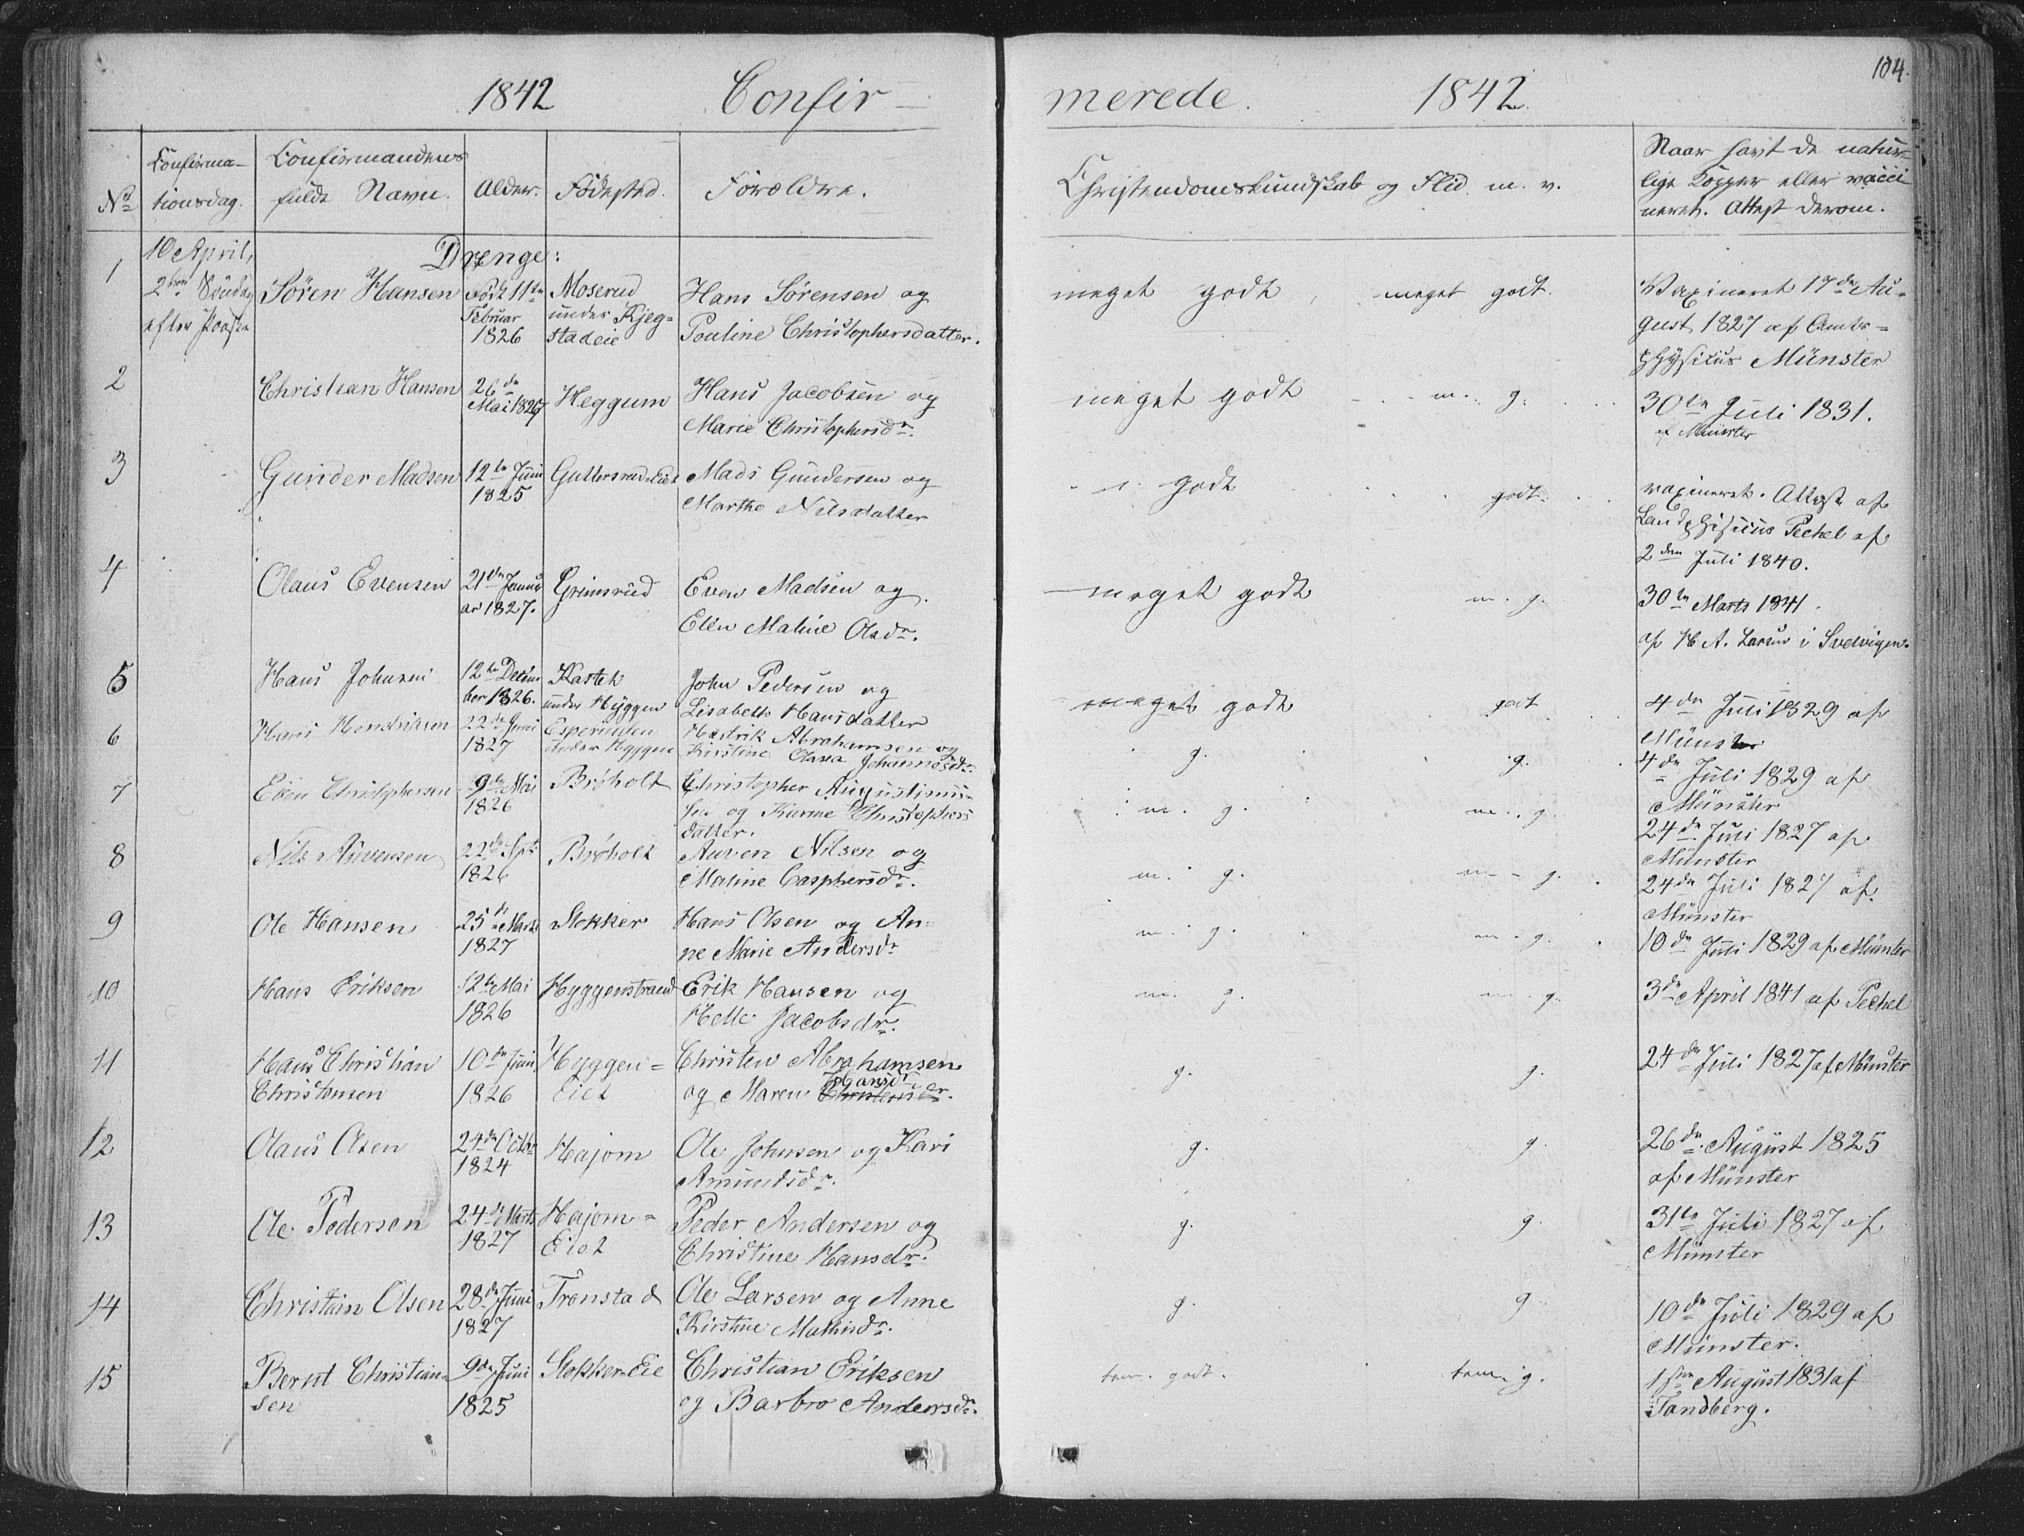 1842 Confir-
No Confirma-tionsdag. Confirmandens fulde Navn. Alder. Födested. Forældre.
10 April, 2den Söndag efter Paaske
Drenge:
1 Sören Hansen Födt 11te Februar 1826 Moserud under Kjeg=stadeie Hans Sørensen og
Pouline Christophersdatter.
2 Christian Hansen 26de Mai 1826 Heggum Hans Jacobsen og
Marie Christophersdr.
3 Gunder Madsen 12te Juni 1825 Guttersrud=Eiet Mads Gundersen og
Marthe Nilsdatter
4 Olaus Evensen 21de Januar 1827. Grimsrud Even Madsen og
Elen Maline Olsdr.
5 Hans Johnsen 12te Decem ber 1826. Kastet under Hyggen John Pedersen og
Lisabeth Hansdatter
6 Hans Hendriksen 22de Juni 1827 under Hyggen Hendrik Abrahamsen og
Kirstine Olava Johannesdr.
7 Christophersen 9de Mai 1826 Bröholt Christopher Augustinu-
sen og Karine Christophers
datter.
8 Nils Auvensen 22de Sept. 1826 Bröholt Auven Nilsen og
Maline Casphersdr.
9 Ole Hansen 25de Marts 1827 Stokker Hans Olsen og An-
ne Marie Andersdr
10 Hans Eriksen 12te Mai 1826 Hyggenstrand Erik Hansen og
Helle Jacobsdr.
11 Hans Christian Christensen 10de Juni 1826 Hyggen=Eiet Christen Abrahamsen
og Maren Christensdr.
12 Olaus Olsen 24de Octbr 1824 Hajom Ole Johnsen og Kari
Amundsdr.
13 Ole Pedersen 24de Marts 1827 Hajom=Eiet Peder Andersen og
Christine Hansdr.
14 Christian Olsen 28de Juni 1827 Trønstad Ole Larsen og Anne
Kirstine Mathisdr.
15 Bernt Christian=sen 9de Juni 1825 Stokker=Eie Christian Eriksen
og Barbro Andersdr.
104.
merede. 1842.
Christendomskundskab og Flid m. v. Naar havt de natur-
lige Kopper eller vacci
neret. Attest derom.
meget godt, meget godt. Vaxineret 17de Au-
gust 1827 af Amts-
physicus Münster
meget godt m. g. 30te Juli 1831.
af Münster
godt godt. vaxineret. Attest af
Landphysicus Pechel af
2den Juli 1840.
meget godt m. g. 30te Marts 1841.
af H A. Larsen i Svelvigen.
meget godt godt 4de Juli 1829 af
Münster
g. g. 4de Juli 1829 af
Münster
m. g. m. g. 24de Juli 1827 af
Münster
m. g. m - g. 24de Juli 1827 af
Münster
m. g. m. g. 10de Juli 1829 af Münster
m. g. m. g. 3de April 1841 af Pechel
g. g. 24de Juli 1827 af Münster
g. g. 26de August 1825
af Münster
g. g. 31te Juli 1827 af
Münster
g. g. 10de Juli 1829 af
Münster.
tem. godt. tem. g. 1ste August 1831 af
Tandberg.